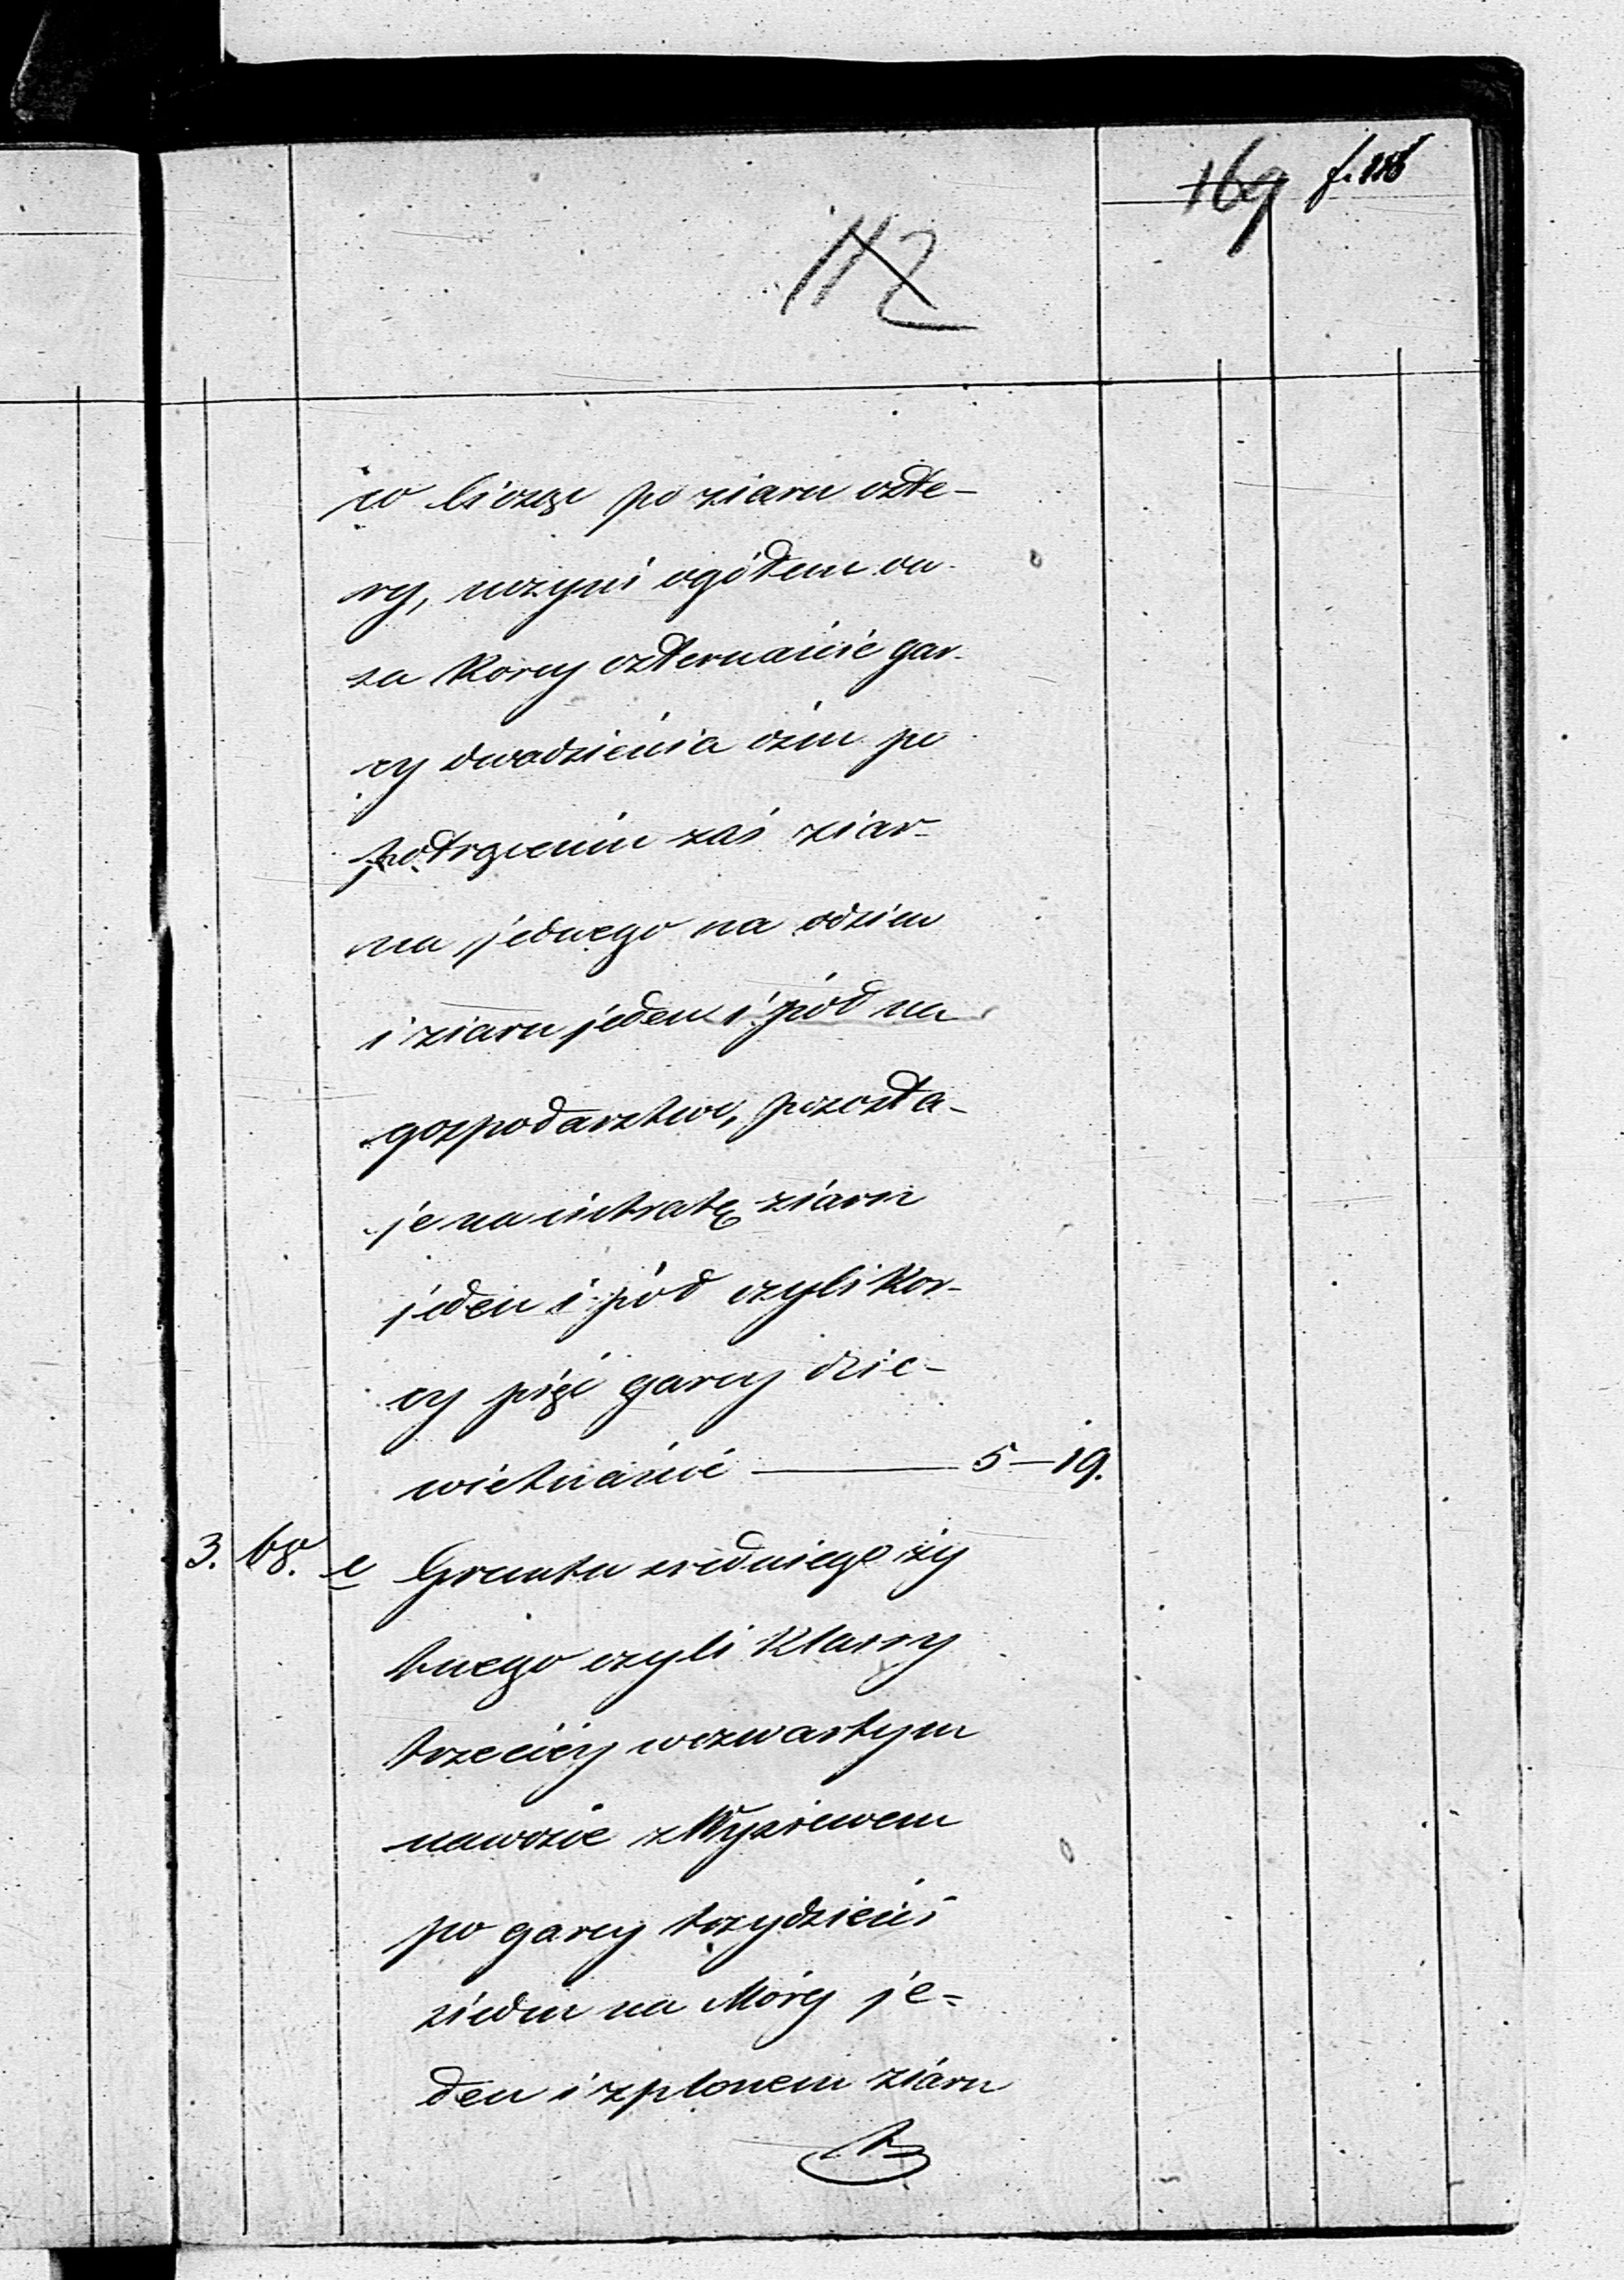 169 f. 118
112
co licząc po ziarn czte-
ry, uczyni ogółem ow-
sa Korcy czternaście gar-
cy dwadzieścia ośm po
potrąceniu zaś ziar-
na jednego na odsiew
i ziarn jeden i pół na
gospodarstwo, pozosta-
je na intratę ziarn
jeden i pół czyli Kor-
cy pięć garcy dzie-
więtnaście — 5—19.
3. 68. e Gruntu średniego ży
tnego czyli Klassy
trzeciéy wczwartym
nawozie z Wysiewem
po garcy trzydzieści
siedm na Morg je-
den i z plonem ziarn